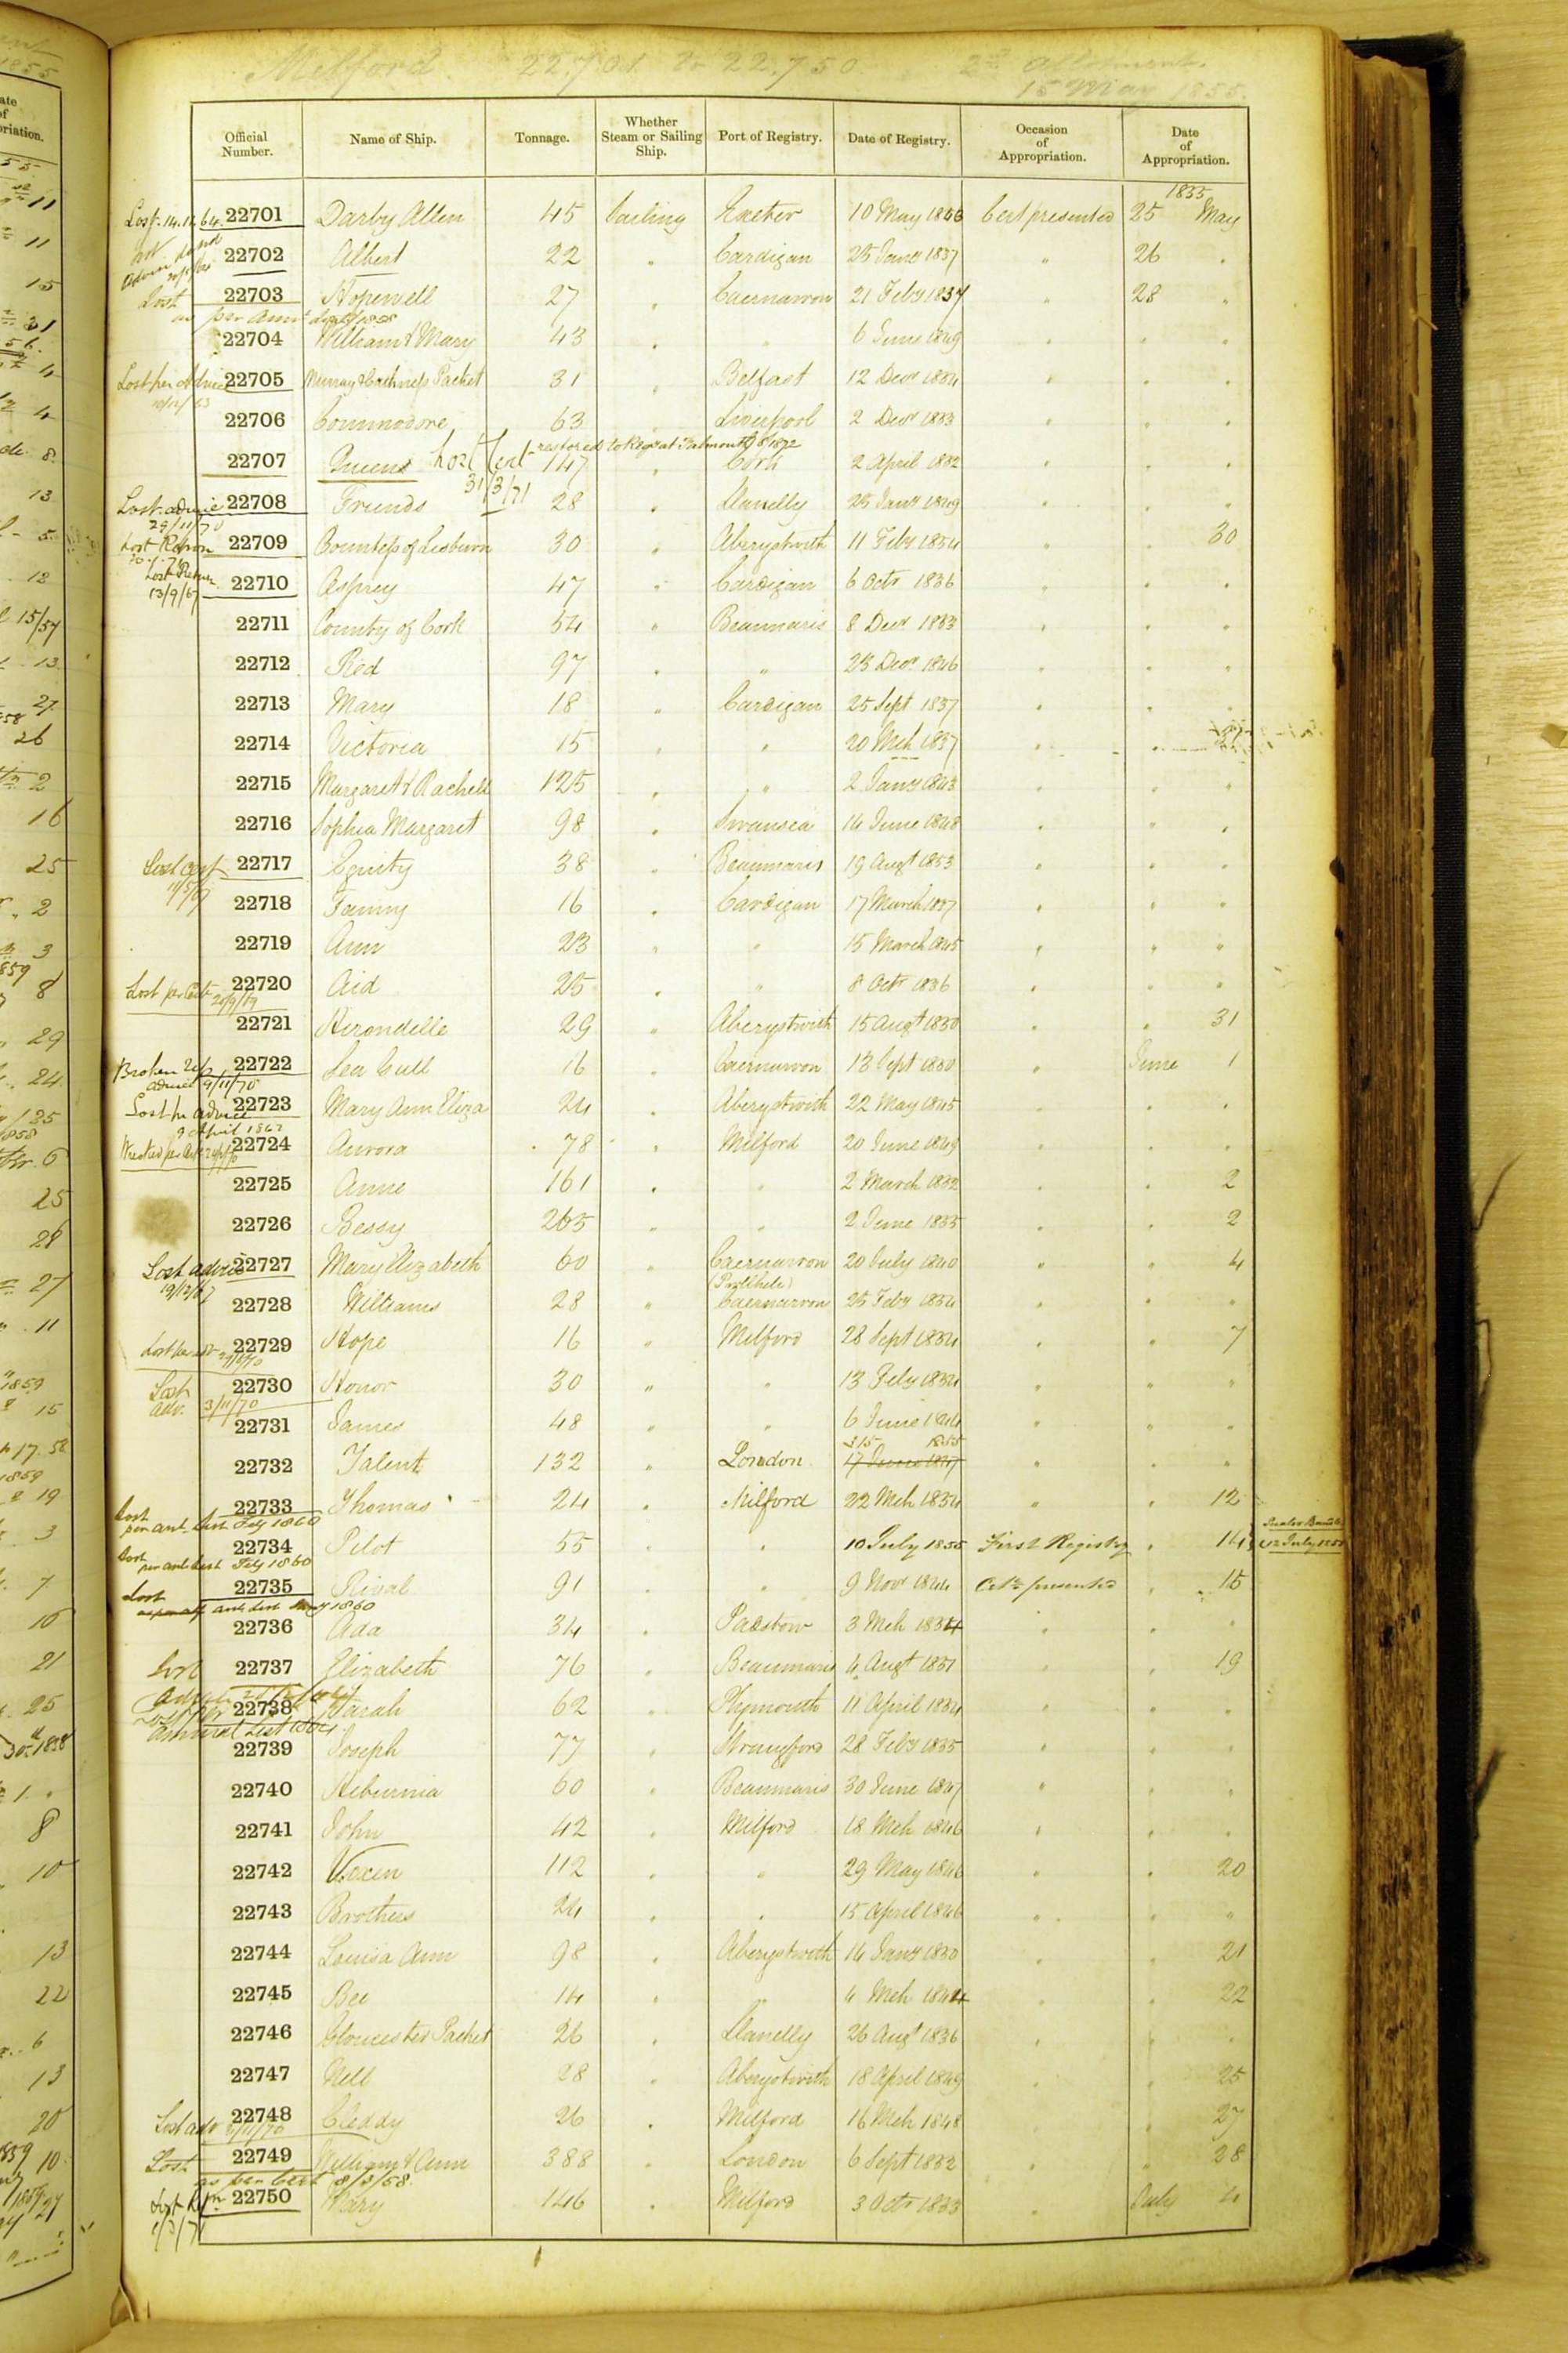 Milford 22,701 to 22,750 2nd Allotment.
15 May 1855.
Official Number. Name of Ship. Tonnage. Whether Steam or Sailing Ship. Port of Registry. Date of Registry. Occasion of Appropriation. Date of Appropriation.
1855
Lost. 14.11.64. 22701 Darby Allen 45 Sailing Exeter 10 May 1846 Cert presented 25 May
22702 Albert 22 " Cardigan 25 Jany 1837 " 26 "
Lost 22703 Hopewell 27 " Caernarvon 21 Feby 1837 " 28 "
as per Annl List 1858
22704 William & Mary 43 " " 6 June 1849 " " "
Lost per Advice 22705 Packet 31 " Belfast 12 Decr 1834 " " "
10/12/63
22706 Commodore 63 " Liverpool 2 Decr 1833 " " "
restored to Regr at Falmouth 1872
22707 Queen Lost Cert 147 " Cork 2 April 1832 " " "
31/3/71
Lost. advice 22708 Friends 28 " Llanelly 25 Jany 1849 " " "
29/11/70
Lost Return 22709 Countess of Lisburn 30 " Aberystwith 11 Feby 1854 " " 30
Lost Return 22710 Osprey 47 " Cardigan 6 Octr 1836 " " "
13/9/67
22711 County of Cork 54 " Beaumaris 8 Decr 1853 " " "
22712 Red 97 " " 23 Decr 1846 " " "
22713 Mary 18 " Cardigan 25 Sept 1837 " " "
22714 Victoria 15 " " 20 Mch 1837 " " "
22715 Margaret & Rachell 125 " " 2 Jany 1843 " " "
22716 Sophia Margaret 98 " Swansea 14 June 1848 " " "
Lost Cert 22717 Equity 38 " Beaumaris 19 Augt 1853 " " "
22718 Fanny 16 " Cardigan 17 March 1837 " " "
22719 Ann 23 " " 15 March 1845 " " "
Lost per Cert 22720 Aid 25 " " 8 Octr 1836 " " "
20/9/69
22721 Hirondelle 29 " Aberystwith 15 Augt 1850 " " 31
Broken Up 22722 Sea Gull 16 " Caernarvon 13 Sept 1850 " June 1
advice 9/11/70
Lost pr advice 22723 Mary Ann Eliza 24 " Aberystwith 22 May 1845 " " "
9 April 1867
22724 Aurora 78 " Milford 20 June 1849 " " "
22725 Anne 161 " " 2 March 1832 " " 2
22726 Bessy 265 " " 2 June 1835 " " 2
Lost advice 22727 Mary Elizabeth 60 " Caernarvon 20 July 1840 " " 4
19/12/67 (Pwllheli)
22728 Williams 28 " Caernarvon 25 Feby 1854 " " "
22729 Hope 16 " Milford 28 Sept 1854 " " 7
Lost 22730 Honor 30 " " 13 Feby 1854 " " "
adv. 3/11/70
22731 James 48 " " 6 June 1844 " " "
315 1855
22732 Talent 132 " London 17 June 1847 " " "
Lost 22733 Thomas 24 " Milford 22 Mch 1854 " " 12
per anl. List Feby 1860
22734 Pilot 55 " " 10 July 1855 First Registry " 14 12 July 1855
Lost per anl List Feby 1860
Lost 22735 Rival 91 " " 9 Novr 1844 Certe presented " 15
anl List 1860
22736 Ada 34 " Padstow 3 Mch 1834 " " "
Lost 22737 Elizabeth 76 " Beaumaris 4 Augt 1851 " " 19
22738 Sarah 62 " Plymouth 11 April 1834 " " "
Annual List
22739 Joseph 77 " Strangford 28 Feby 1835 " " "
22740 Hibernia 60 " Beaumaris 30 June 1847 " " "
22741 John 42 " Milford 18 Mch 1846 " " "
22742 Vixen 112 " " 29 May 1846 " " 20
22743 Brothers 24 " " 15 April 1846 " " "
22744 Louisa Ann 98 " Aberystwith 14 Jany 1850 " " 21
22745 Bee 14 " " 4 Mch 1844 " " 22
22746 Gloucester Packet 26 " Llanelly 26 Augt 1836 " " "
22747 Nell 28 " Aberystwith 18 April 1849 " " 25
Lost adv 22748 Cleddy 26 " Milford 16 Mch 1848 " " 27
Lost 22749 William & Ann 388 " London 6 Sept 1832 " " 28
as per Cert 8/3/58
22750 Mary 146 " Milford 3 Octr 1833 " July 4